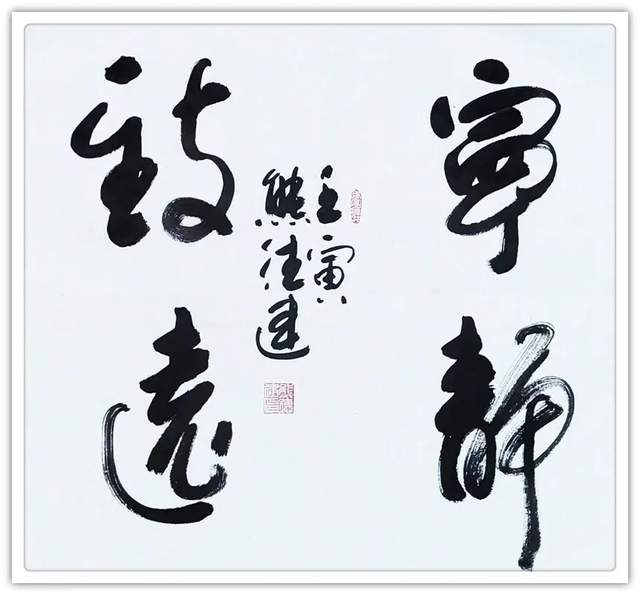 寧靜
致遠
壬寅
熊德建